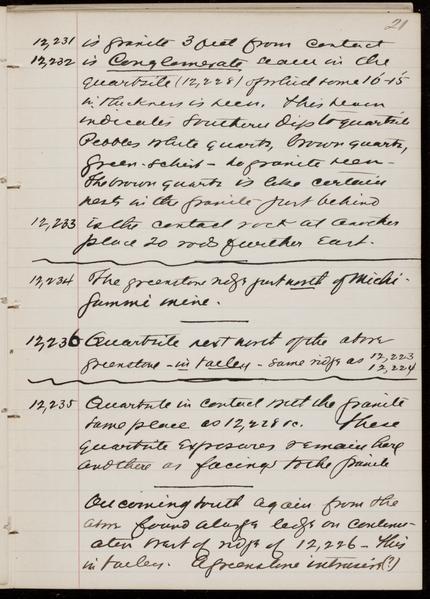 21
12,231 is granite 3 feet from contact
12,232 is Conglomerate seam in the
quartzite (12,228) of which some 10'-15'
in thickness is seen. This seam
indicates Southern Dip to quartzite
Pebbles white quartz, brown quartz,
green-schist - no granite seen -
The brown quartz is like certain
nests in the granite just behind
12,233 is the contact rock at another
place 20 rods further East.
12,234 The greenstone ridge just north of Michi-
gammi mine.
12,236 Quartzite next north of the above
greenstone - in valley - same ridge as 12,223
12,224
12,235 Quartzite in contact with the granite
same place as 12,228 &c. These
quartzite exposures remain here
and there as facings to the granite
On coming south again from the
above found a large ledge on continu-
ation East of ridge of 12,226 - This
in valley. A greenstone intrusive (?)